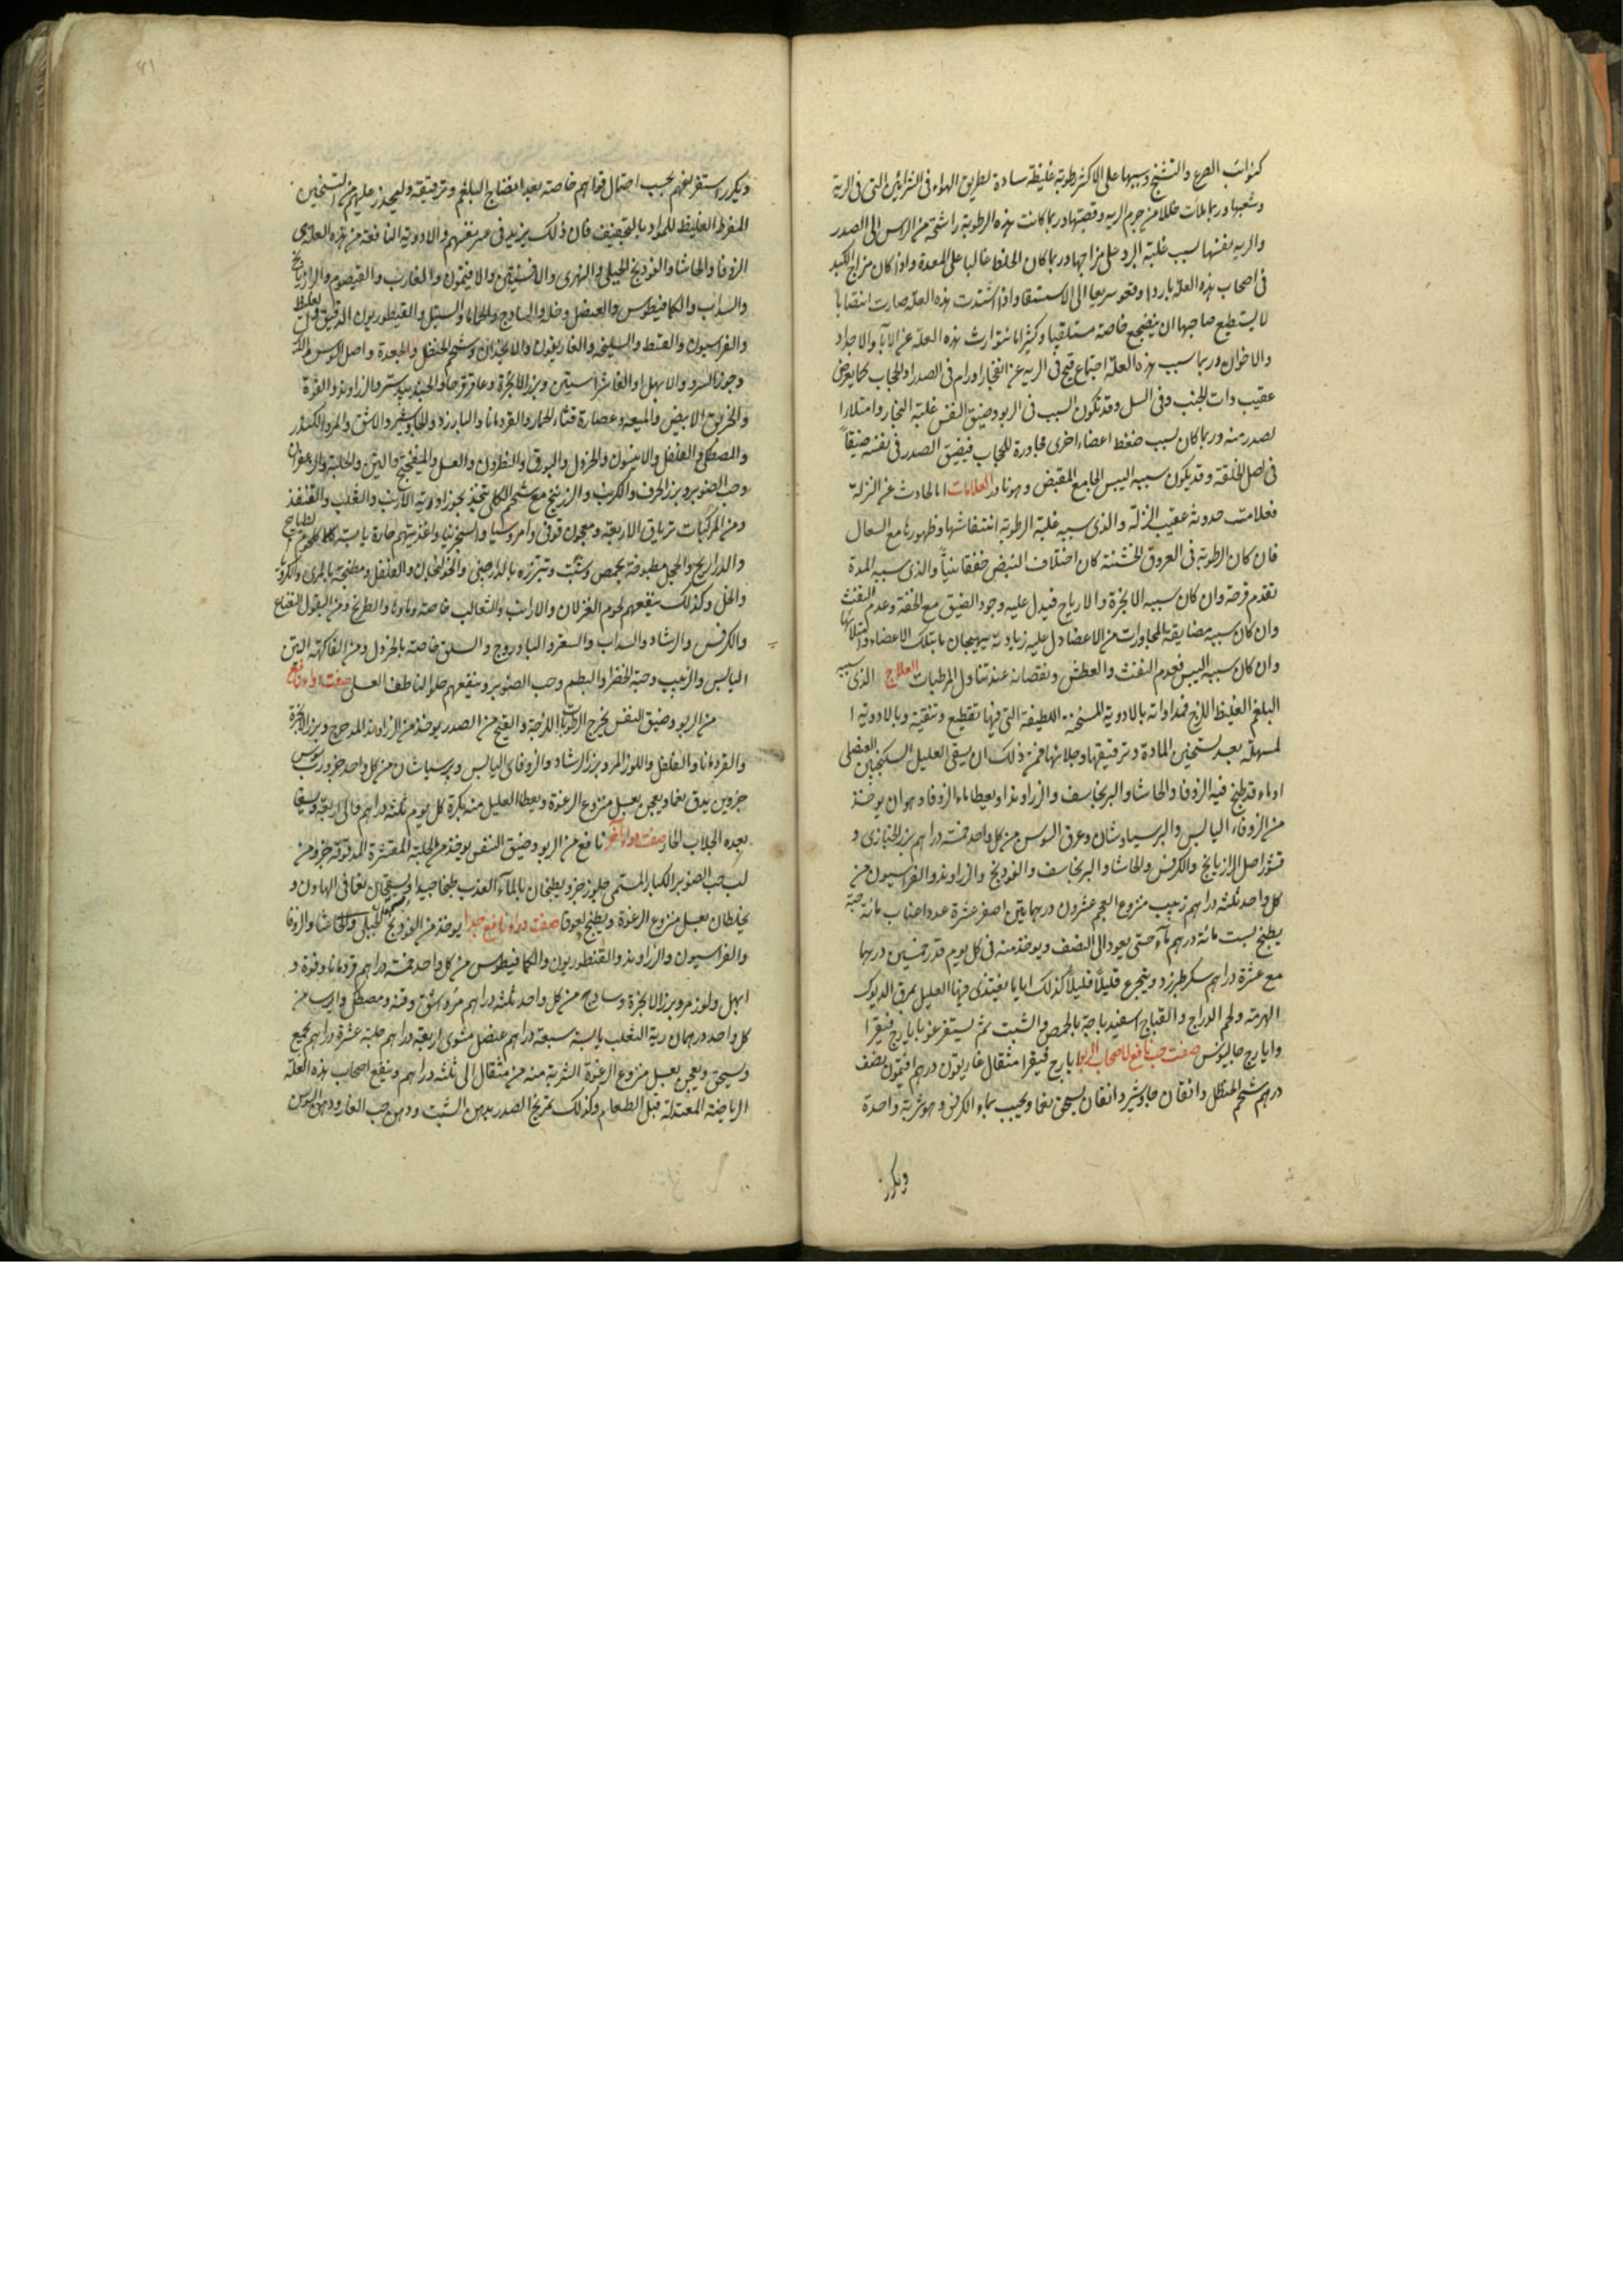 كنوائب الصرع والتشنج وسببها على الاكثر رطوبة غليظة سادة لطريق الهواء فى الشرائين التى فى الرية
وشعبها وربما ملأت خللا من جرم الريه وقصبتها وربما كانت هذه الرطوبة راشحة من الراس الى الصدر
والريه بفنها لسبب غلبة البرد على مزاجها وربما كان الخلط غالبا على المعدة واذا كان مزاج الكبد
فى اصحاب هذه العلة باردا وقعو سريعا الى الاستسقا واذا اشتدت هذه العلة صارت انتصابا
لا يستطيع صاحبها ان يضجع خاصة مستلقيا وكثيرا ما يتوارث هذه العلة عن الآباء والاجداد
والاخوال وربما سبب هذه العلة اجتماع قيح فى الريه عن انفجار اورام فى الصدر او الحجاب كما يعرض
عقيب ذات الجنب وفى السل وقد تكون السبب فى الربو وضيق النفس غلبة البخار وامتلاء
لصدر منه وربما كان لسبب ضغط اعضاء اخرى مجاورة للحجاب فيضيق الصدر فى نفسه ضيقاً
فى اصل الخلقة وقد يكون سببه اليبس الجامع المقبض وهو نادر العلامات اما الحادث عن النزلة
فعلامته حدوثه عقيب النزلة والذى سببه غلبة الرطوبة انتفاشها وظهورها مع السعال
فان كان الرطوبة فى العروق الخشنة كان اختلاف النبض خفقانياً والذى سببه المدة
تقدم قرحة وان كان سببه الابخرة والارياح فيدل عليه وجود الضيق مع الخفة وعدم النفث
وان كان سببه مضايقة المجاورات من الاعضا دل عليه زيادته بهيجان تلك الاعضاء وامتلائها
وان كان سببه اليبس فعدم النفث والعطش ونقصانه عند تناول المرطبات العلاج الذى سببه
البلغم الغليظ اللزج فمداواته بالادوية المسخنة اللطيفة التى فيها تقطيع وتنقية وبالادوية ا
لمسهلة بعد تسخين المادة وترقيقها وجلائها فمن ذلك ان يسقى العليل السكنجبين العنصلى
او ماء قد طبخ فيه الزوفا والحاشا والبرنجاسف والزراوند او يعطا ماء الزوفا وهو ان يوخذ
من الزوفاء اليابس والبرسياوشان وعرق السوس من كل واحد خمسة دراهم بزر الخبازى و
قشور اصل الرازيانج والكرفس والحاشا والبرنجاسف والفودنج والزراوند والفراسيون من
كل واحد ثلثه دراهم زبيب منزوع العجم عشرون درهما تين اصفر عشرة عددا عناب مائة حبة
يطبخ بست مائة درهم ماء حتى يعود الى النصف ويوخذ منه فى كل يوم قدر خمسين درهما
مع عشرة دراهم سكر طبرزد ويتجرع قليلاً قليلاً كذلك اياما يغتذى فيها العليل بمرق الديوك
الهرمة ولحم الدراج والقباج اسفيدباجة بالحمص والشبت ثم يستفرغوا بايارج فيقرا
وايارج جالينوس صفت حب نافع لاصحاب الربو ايارج فيقرا مثقال غاريقون درهم افتيمون نصف
درهم شحم الحنظل دانقان جاوشير دانقان يسحق نعما ويحبب بماء الكرفس وهو شربة واحدة
ويكرر
ويكرر استفراغهم بحسب احتمال قواهم خاصة بعد انضاج البلغم وترقيقه وليحذر عليهم من التسخين
المفرط الغليظ للمواد بالتجفيف فان ذلك يزيد فى عسر نفسهم والادوية النافعة من هذه العلة هى
الزوفا والحاشا والفودنج الجبلى والنهرى والافسنتين والافتيمون والغارب والقيصوم والرازيانج
والسداب والكمافيطوس والعنصل وخله والساذج والحاما والسنبل والقنطوريون الدقيق
والفراسيون والقسط والسليخة والغاريقون والانجدان وشحم الحنظل والجعدة واصل السوس
وجوز السرو والابهل او الفاشراستين وبزر الانجرة وعاقرقرحا والجندبيدستر والزراوند والفوة
والخربق الابيض والميعة وعصارة قثاء الحمار والقردمانا والبارزد والجاوشير والاشق والمر والكندر
والمصطكى والفلفل والانيسون والخردل والبورق والنطرون والعسل والميفختج والتين والحلبة والزعفران
وحب الصنوبر وبزر الحرف والكربت والزرنيخ مع شحم الكلى تبخير بخور او رية الارنب والثعلب والقنفذ
ومن المركبات ترياق الاربعة ومعجون قوفى وامروسيا والسجزنيا واغذيتهم حارة يابسة
والدراريج والحجل مطبوخة بحمص وشبت وتبزره بالدارصينى والخولنجان والفلفل ومطجنة بالمرى والكرويا
والخل وكذلك ينفعهم لحوم الغزلان والارانب والثعالب خاصة وماوها والطريخ ومن البقول النعناع
والكرفس والرشاد والسداب والسعتر والبادروج والسلق خاصته بالخردل ومن الفاكهة التين
اليابس والزبيب وحبة الخضرا والبطم وحب الصنوبر وينفعهم حلو الناطف العسلى صفت دواء نافع
من الربو وضيق النفس يخرج الرطوبات اللزجة والقيح من الصدر يوخذ من الزراوند المدحرج وبزر الانجرة
والقردمانا والفلفل واللوز المر وبزر الرشاد والزوفاى اليابس وبرسياوشان من كل واحد جزو رب سوس
جزوين يدق نعما ويعجن بعسل منزوع الرغوة ويعطا العليل منه بكرة كل يوم ثلثه دراهم والى اربعة ويسقا
بعده الجلاب الحار صفت دواء آخر نافع من الربو وضيق النفس يوخذ من الحلبة المقشرة المدقوقة جزو من
لب حب الصنوبر الكبار المسمى جلوز جزو يطبخان بالماء العذب طبخا جيدا ويسحقان نعما فى الهاون و
يخلطان بعسل منزوع الرغوة ويطبخ لعوقا صفت دواء نافع جدا يوخذ من الفودنج الجبلى والحاشا والزوفا
والفراسيون والزراوند والقنطوريون والكمافيطوس من كل واحد خمسة دراهم قردمانا وفوة و
ابهل ولوز مر وبزر الانجرة وساذج من كل واحد ثلثه دراهم مر واشق وقنه ومصطكى وايرسا من
كل واحد درهمان رية الثعلب يابسة سبعة دراهم عنصل مشوى اربعة دراهم حلبة عشرة دراهم يجمع
ويسحق ويعجن بعسل منزوع الرغوة الشربة منه من مثقال الى ثلثه دراهم وينفع اصحاب هذه العلة
الرياضة المعتدلة قبل الطعام وكذلك تمريخ الصدر بدهن الشبت ودهن حب الغار ودهن السوسن